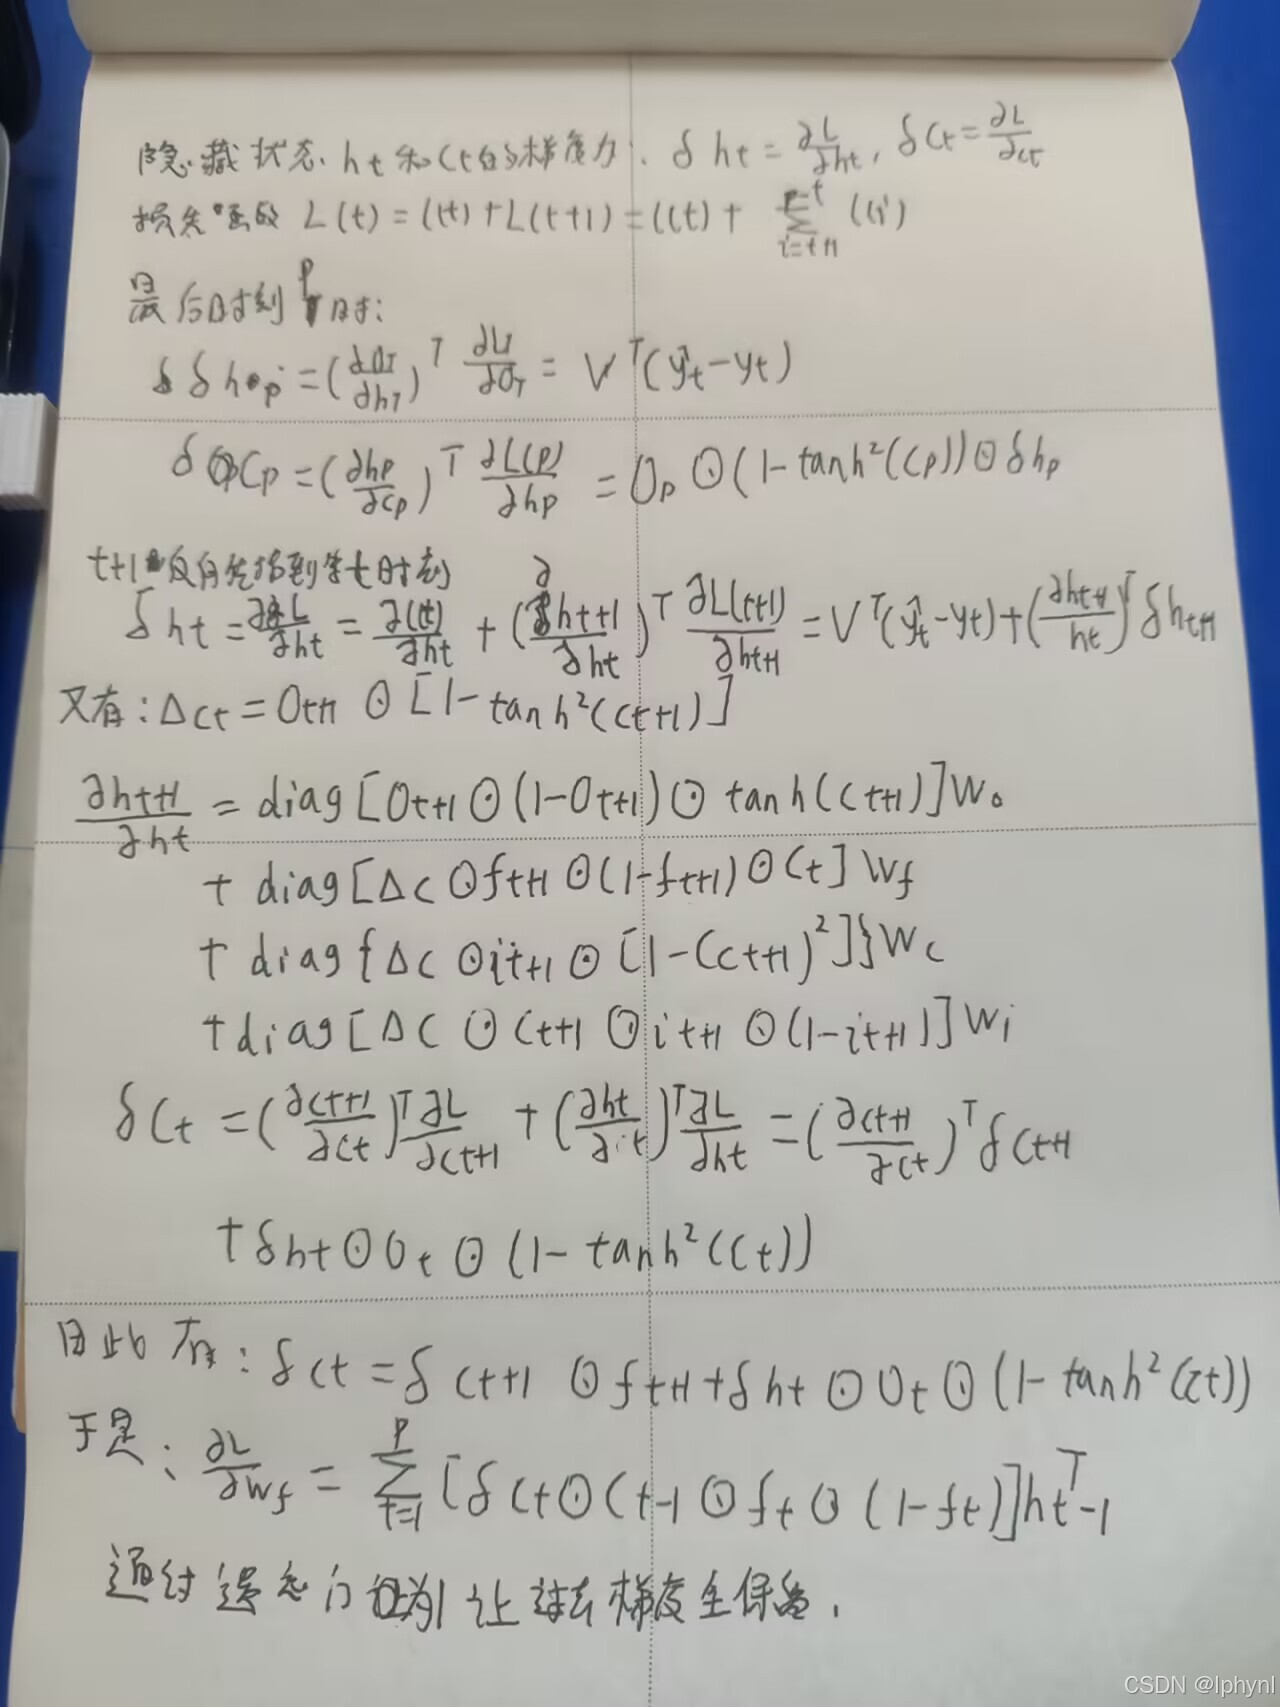 隐藏状态 ht和Ct的梯度为、δht = ∂L/∂ht, δCt = ∂L/∂Ct
损失函数 L(t) = l(t) + L(t+1) = l(t) + Σ_{i=t+1} l(i)
最后时刻P时:
δhp = (∂OT/∂hT)^T ∂LT/∂OT = V^T(ŷt-yt)
δCp = (∂hp/∂Cp)^T ∂L(p)/∂hp = Op ⊙ (1-tanh²(Cp)) ⊙ δhp
t+1反向传播到第t时刻
δht = ∂L/∂ht = ∂l(t)/∂ht + (∂ht+1/∂ht)^T ∂L(t+1)/∂ht+1 = V^T(ŷt-yt) + (∂ht+1/ht)^T δht+1
又有: Δct = Ot+1 ⊙ [1-tanh²(Ct+1)]
∂ht+1/∂ht = diag[Ot+1 ⊙ (1-Ot+1) ⊙ tanh(Ct+1)]Wo
+ diag[Δc ⊙ ft+1 ⊙ (1-ft+1) ⊙ Ct]Wf
+ diag{Δc ⊙ it+1 ⊙ [1-(Ct+1)²]}Wc
+ diag[Δc ⊙ Ct+1 ⊙ it+1 ⊙ (1-it+1)]Wi
δCt = (∂Ct+1/∂Ct)^T ∂L/∂Ct+1 + (∂ht/∂it)^T ∂L/∂ht = (∂Ct+1/∂Ct)^T δCt+1
+ δht ⊙ Ot ⊙ (1-tanh²(Ct))
因此有: δCt = δCt+1 ⊙ ft+1 + δht ⊙ Ot ⊙ (1-tanh²(Ct))
于是: ∂L/∂Wf = Σ_{t=1}^{P} [δCt ⊙ Ct-1 ⊙ ft ⊙ (1-ft)]ht-1^T
通过遗忘门设为1让过去梯度全保留.
CSDN @lphynl